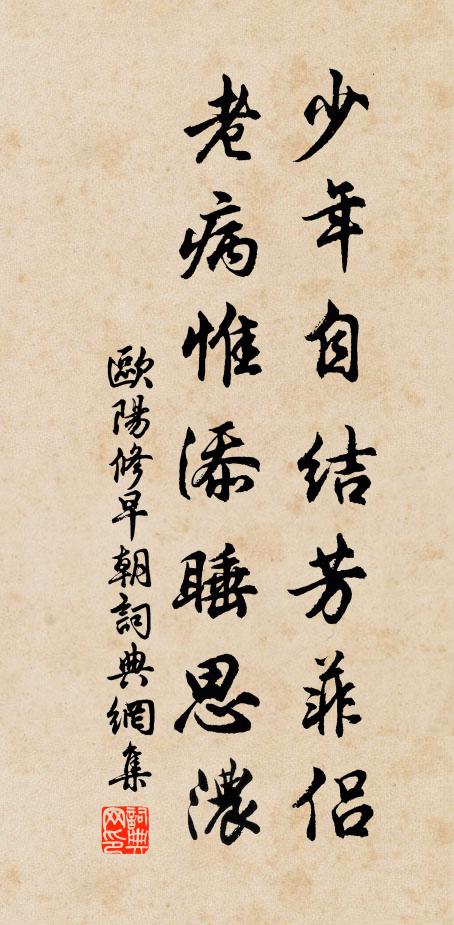 少年自結芳菲侶
老病惟添睡思濃
歐陽修早朝詞典網集
詞典網印